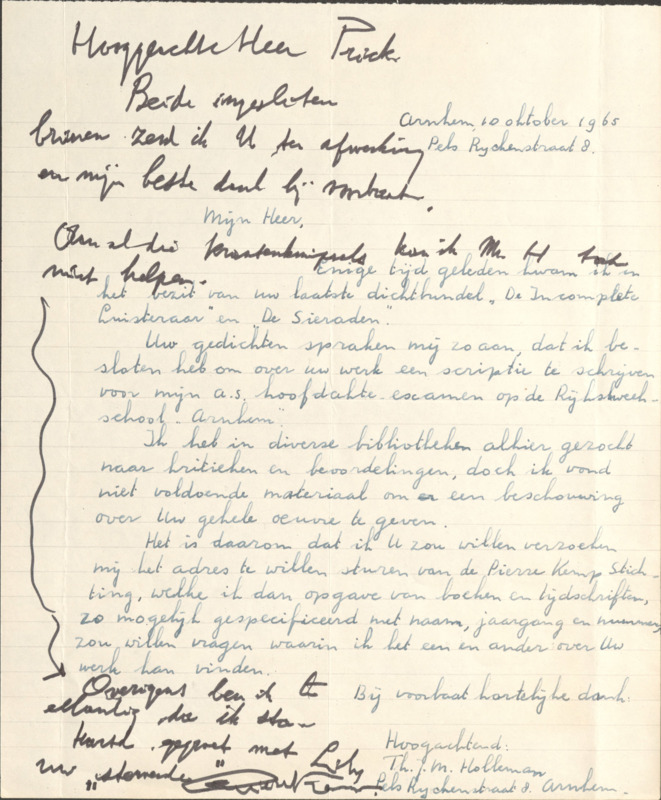 Hooggeachte Heer Prick.
Beide ingesloten
brieven zend ik U ter afwerking
en mijn beste dank bij voorbaat.
Arnhem, 10 oktober 1965
Pels Rychenstraat 8.
Mijn Heer,
Aan al die krantenknipsels kan ik Mr. H
niet helpen.
Enige tijd geleden kwam ik in
het bezit van uw laatste dichtbundel "De Incomplete
Luisteraar" en "De Sieraden".
Uw gedichten spraken mij zo aan, dat ik be-
sloten heb om over uw werk een scriptie te schrijven
voor mijn a.s. hoofdakte-examen op de Rijkskweek-
school "Arnhem".
Ik heb in diverse bibliotheken alhier gezocht
naar kritieken en beoordelingen, doch ik vond
niet voldoende materiaal om er een beschouwing
over Uw gehele oeuvre te geven.
Het is daarom dat ik U zou willen verzoeken
mij het adres te willen sturen van de Pierre Kemp Stich-
ting, welke ik dan opgave van boeken en tijdschriften,
zo mogelijk gespecificeerd met naam, jaargang en nummer,
zou willen vragen waarin ik het een en ander over Uw
werk kan vinden.
Overigens ben ik te
ellendig dat ik
gegroet met
uw
Bij voorbaat hartelijke dank.
Hoogachtend:
Th. J. M. Holleman
Pels Rychenstraat 8. Arnhem.